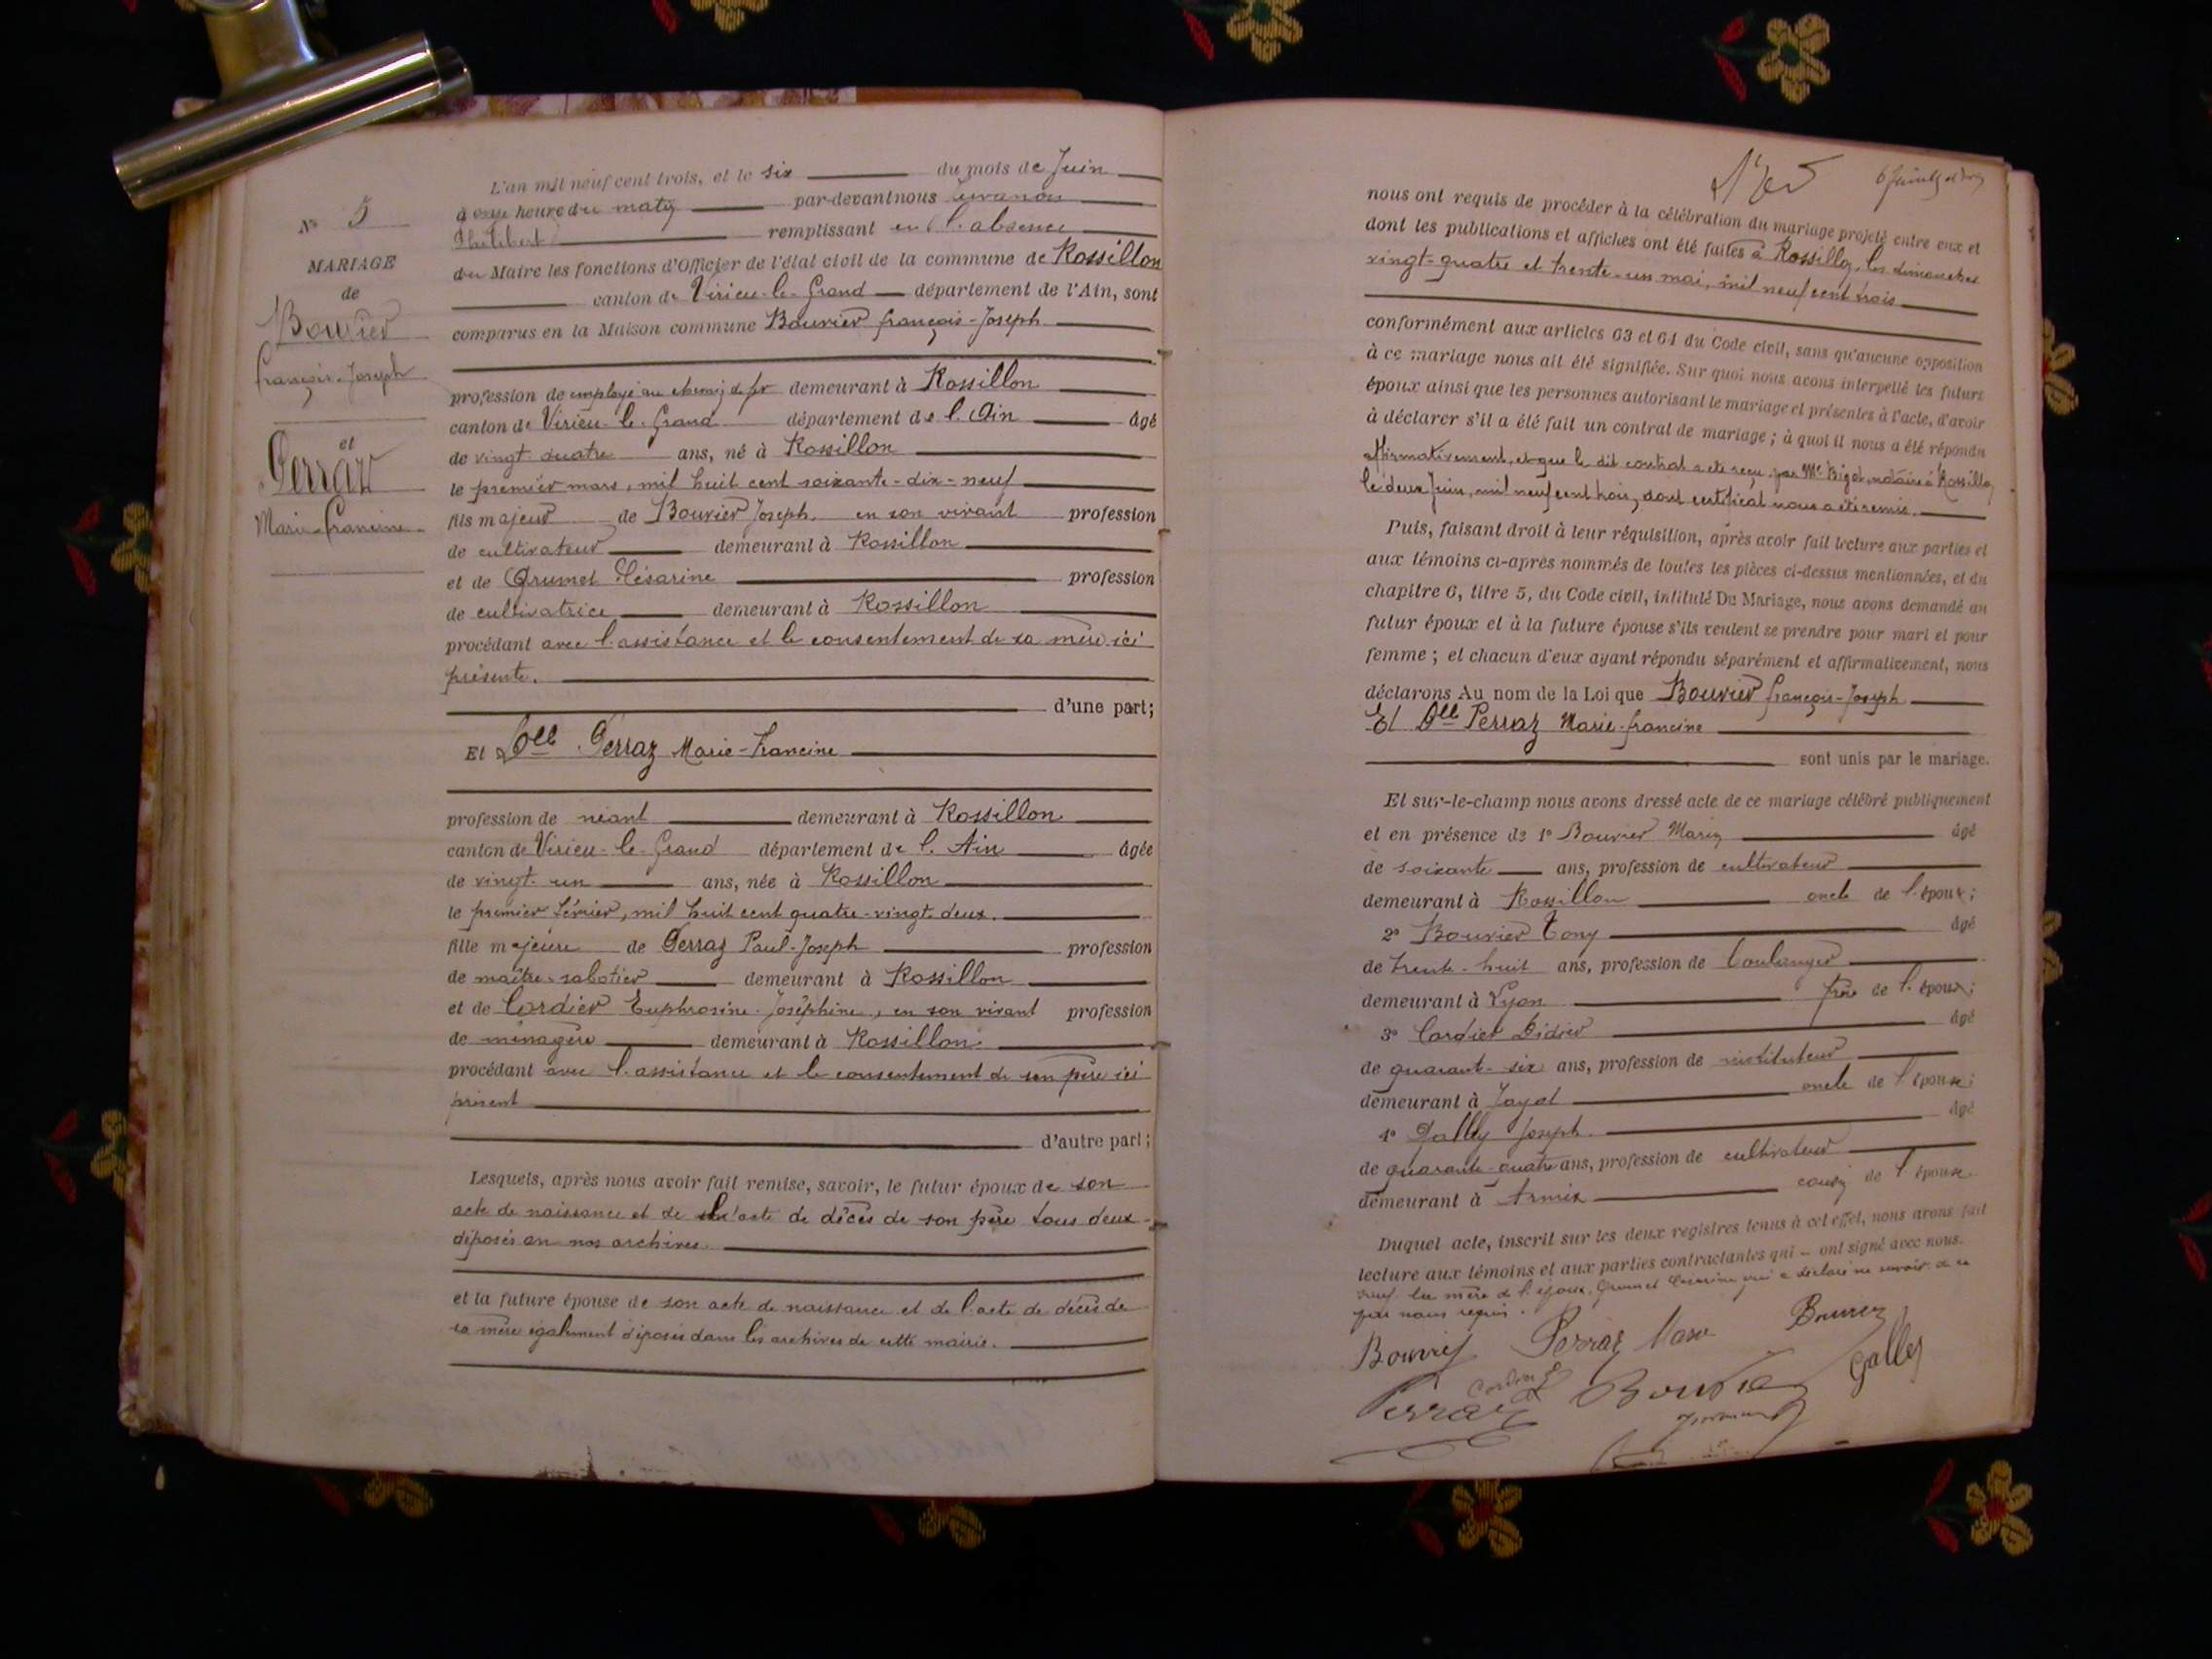 N° 5
MARIAGE
de
Bouvier
françois-Joseph
et
Perraz
Marie-francine
L'an mil neuf cent trois, et le six du mois de Juin
à onze heure du matin par-devant nous
Philibert remplissant en l'absence
du Maire les fonctions d'Officier de l'état civil de la commune de Rossillon
canton de Virieu-le-Grand département de l'Ain, sont
comparus en la Maison commune Bouvier françois-Joseph
profession de employé au chemin de fer demeurant à Rossillon
canton de Virieu-le-Grand département de l'Ain âgé
de vingt-quatre ans, né à Rossillon
le premier mars, mil huit cent soixante-dix-neuf
fils majeur de Bouvier Joseph, en son vivant profession
de cultivateur demeurant à Rossillon
et de Grumet Césarine profession
de cultivatrice demeurant à Rossillon
procédant avec l'assistance et le consentement de sa mère ici
présente.
d'une part;
Et Dlle Perraz Marie-Francine
profession de néant demeurant à Rossillon
canton de Virieu-le-Grand département de l'Ain âgée
de vingt-un ans, née à Rossillon
le premier février, mil huit cent quatre-vingt-deux.
fille majeure de Perraz Paul-Joseph profession
de maître-sabotier demeurant à Rossillon
et de Cordier Euphrosine-Joséphine, en son vivant profession
de ménagère demeurant à Rossillon
procédant avec l'assistance et le consentement de son père ici
présent
d'autre part;
Lesquels, après nous avoir fait remise, savoir, le futur époux de son
acte de naissance et de l'acte de décès de son père tous deux
déposés en nos archives.
et la future épouse de son acte de naissance et de l'acte de décès de
sa mère également déposés dans les archives de cette mairie.
6 Juin
nous ont requis de procéder à la célébration du mariage projeté entre eux et
dont les publications et affiches ont été faites à Rossillon, les dimanches
vingt-quatre et trente-un mai, mil neuf cent trois
conformément aux articles 63 et 64 du Code civil, sans qu'aucune opposition
à ce mariage nous ait été signifiée. Sur quoi nous avons interpellé les futurs
époux ainsi que les personnes autorisant le mariage et présentes à l'acte, d'avoir
à déclarer s'il a été fait un contrat de mariage; à quoi il nous a été répondu
affirmativement, et que le dit contrat a été reçu par Me Bigot, notaire à Rossillon,
le deux Juin, mil neuf cent trois, dont certificat nous a été remis.
Puis, faisant droit à leur réquisition, après avoir fait lecture aux parties et
aux témoins ci-après nommés de toutes les pièces ci-dessus mentionnées, et du
chapitre 6, titre 5, du Code civil, intitulé Du Mariage, nous avons demandé au
futur époux et à la future épouse s'ils veulent se prendre pour mari et pour
femme; et chacun d'eux ayant répondu séparément et affirmativement, nous
déclarons Au nom de la Loi que Bouvier françois-Joseph
Et Dlle Perraz Marie-francine
sont unis par le mariage.
Et sur-le-champ nous avons dressé acte de ce mariage célébré publiquement
et en présence de 1° Bouvier Marin âgé
de soixante ans, profession de cultivateur
demeurant à Rossillon oncle de l'époux;
2° Bouvier Tony âgé
de trente-huit ans, profession de boulanger
demeurant à Lyon frère de l'époux;
3° Cordier Didier âgé
de quarante-six ans, profession de instituteur
demeurant à Jayat oncle de l'épouse;
4° Gally Joseph âgé
de quarante-quatre ans, profession de cultivateur
demeurant à Armix cousin de l'épouse
Duquel acte, inscrit sur les deux registres tenus à cet effet, nous avons fait
lecture aux témoins et aux parties contractantes qui ont signé avec nous.
sauf la mère de l'époux, Grumet Césarine qui a déclaré ne savoir de ce
par nous requis.
Bouvier Perraz Bouvier
Cordier Gally
Perraz Bouvier